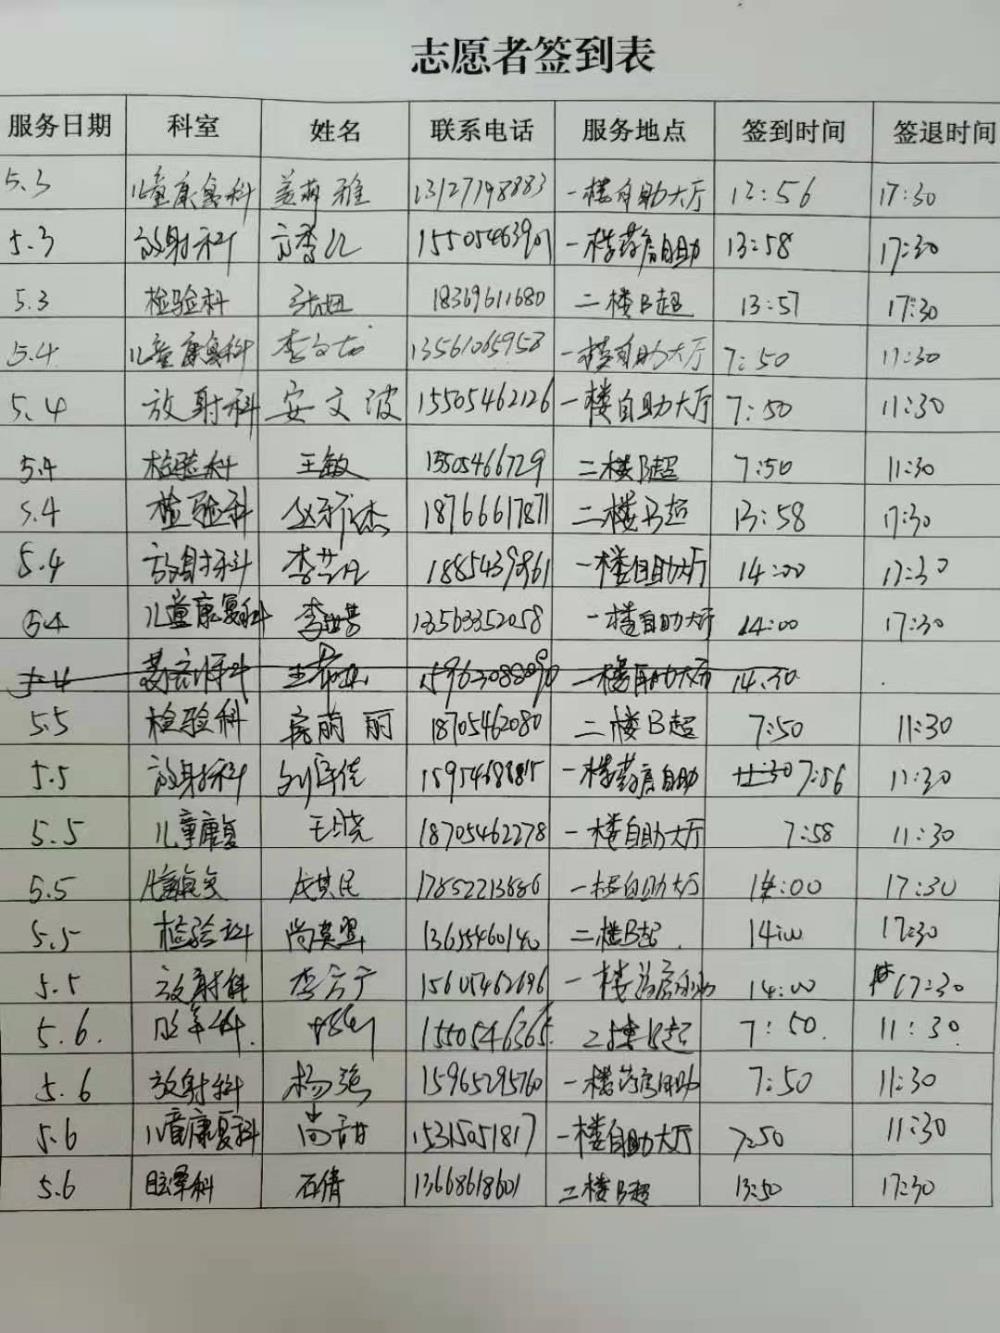 志愿者签到表
服务日期 科室 姓名 联系电话 服务地点 签到时间 签退时间
5.3 儿童康复科 姜萌雅 13127198883 一楼自助大厅 13:56 17:30
5.3 放射科 15505463901 一楼药房自助 13:58 17:30
5.3 检验科 张妞 18369611680 二楼B超 13:57 17:30
5.4 儿童康复科 李文龙 13561065958 一楼自助大厅 7:50 11:30
5.4 放射科 安文波 15505462126 一楼自助大厅 7:50 11:30
5.4 检验科 王敏 15505466729 二楼B超 7:50 11:30
5.4 检验科 18766617871 二楼B超 13:58 17:30
5.4 放射科 李艺凡 18854390961 一楼自助大厅 14:00 17:30
5.4 儿童康复科 李世誉 13563352058 一楼自助大厅 14:00 17:30
5.4 一楼自助大厅 14:30
5.5 检验科 房萌丽 18705462080 二楼B超 7:50 11:30
5.5 放射科 一楼药房自助 11:30 7:56 11:30
5.5 儿童康复 王晓 18705462278 一楼自助大厅 7:58 11:30
5.5 儿童康复 成其民 17852213886 一楼自助大厅 14:00 17:30
5.5 检验科 尚英翠 13655460140 二楼B超 14:00 17:30
5.5 放射科 15605462696 一楼药房自助 14:00 17:30
5.6. 1550546365. 二楼B超 7:50. 11:30.
5.6 放射科 杨强 15965295760 一楼药房自助 7:50 11:30
5.6 儿童康复科 尚甜 15315051817 一楼自助大厅 7:50 11:30
5.6 石倩 13668618601 二楼B超 13:50 17:30